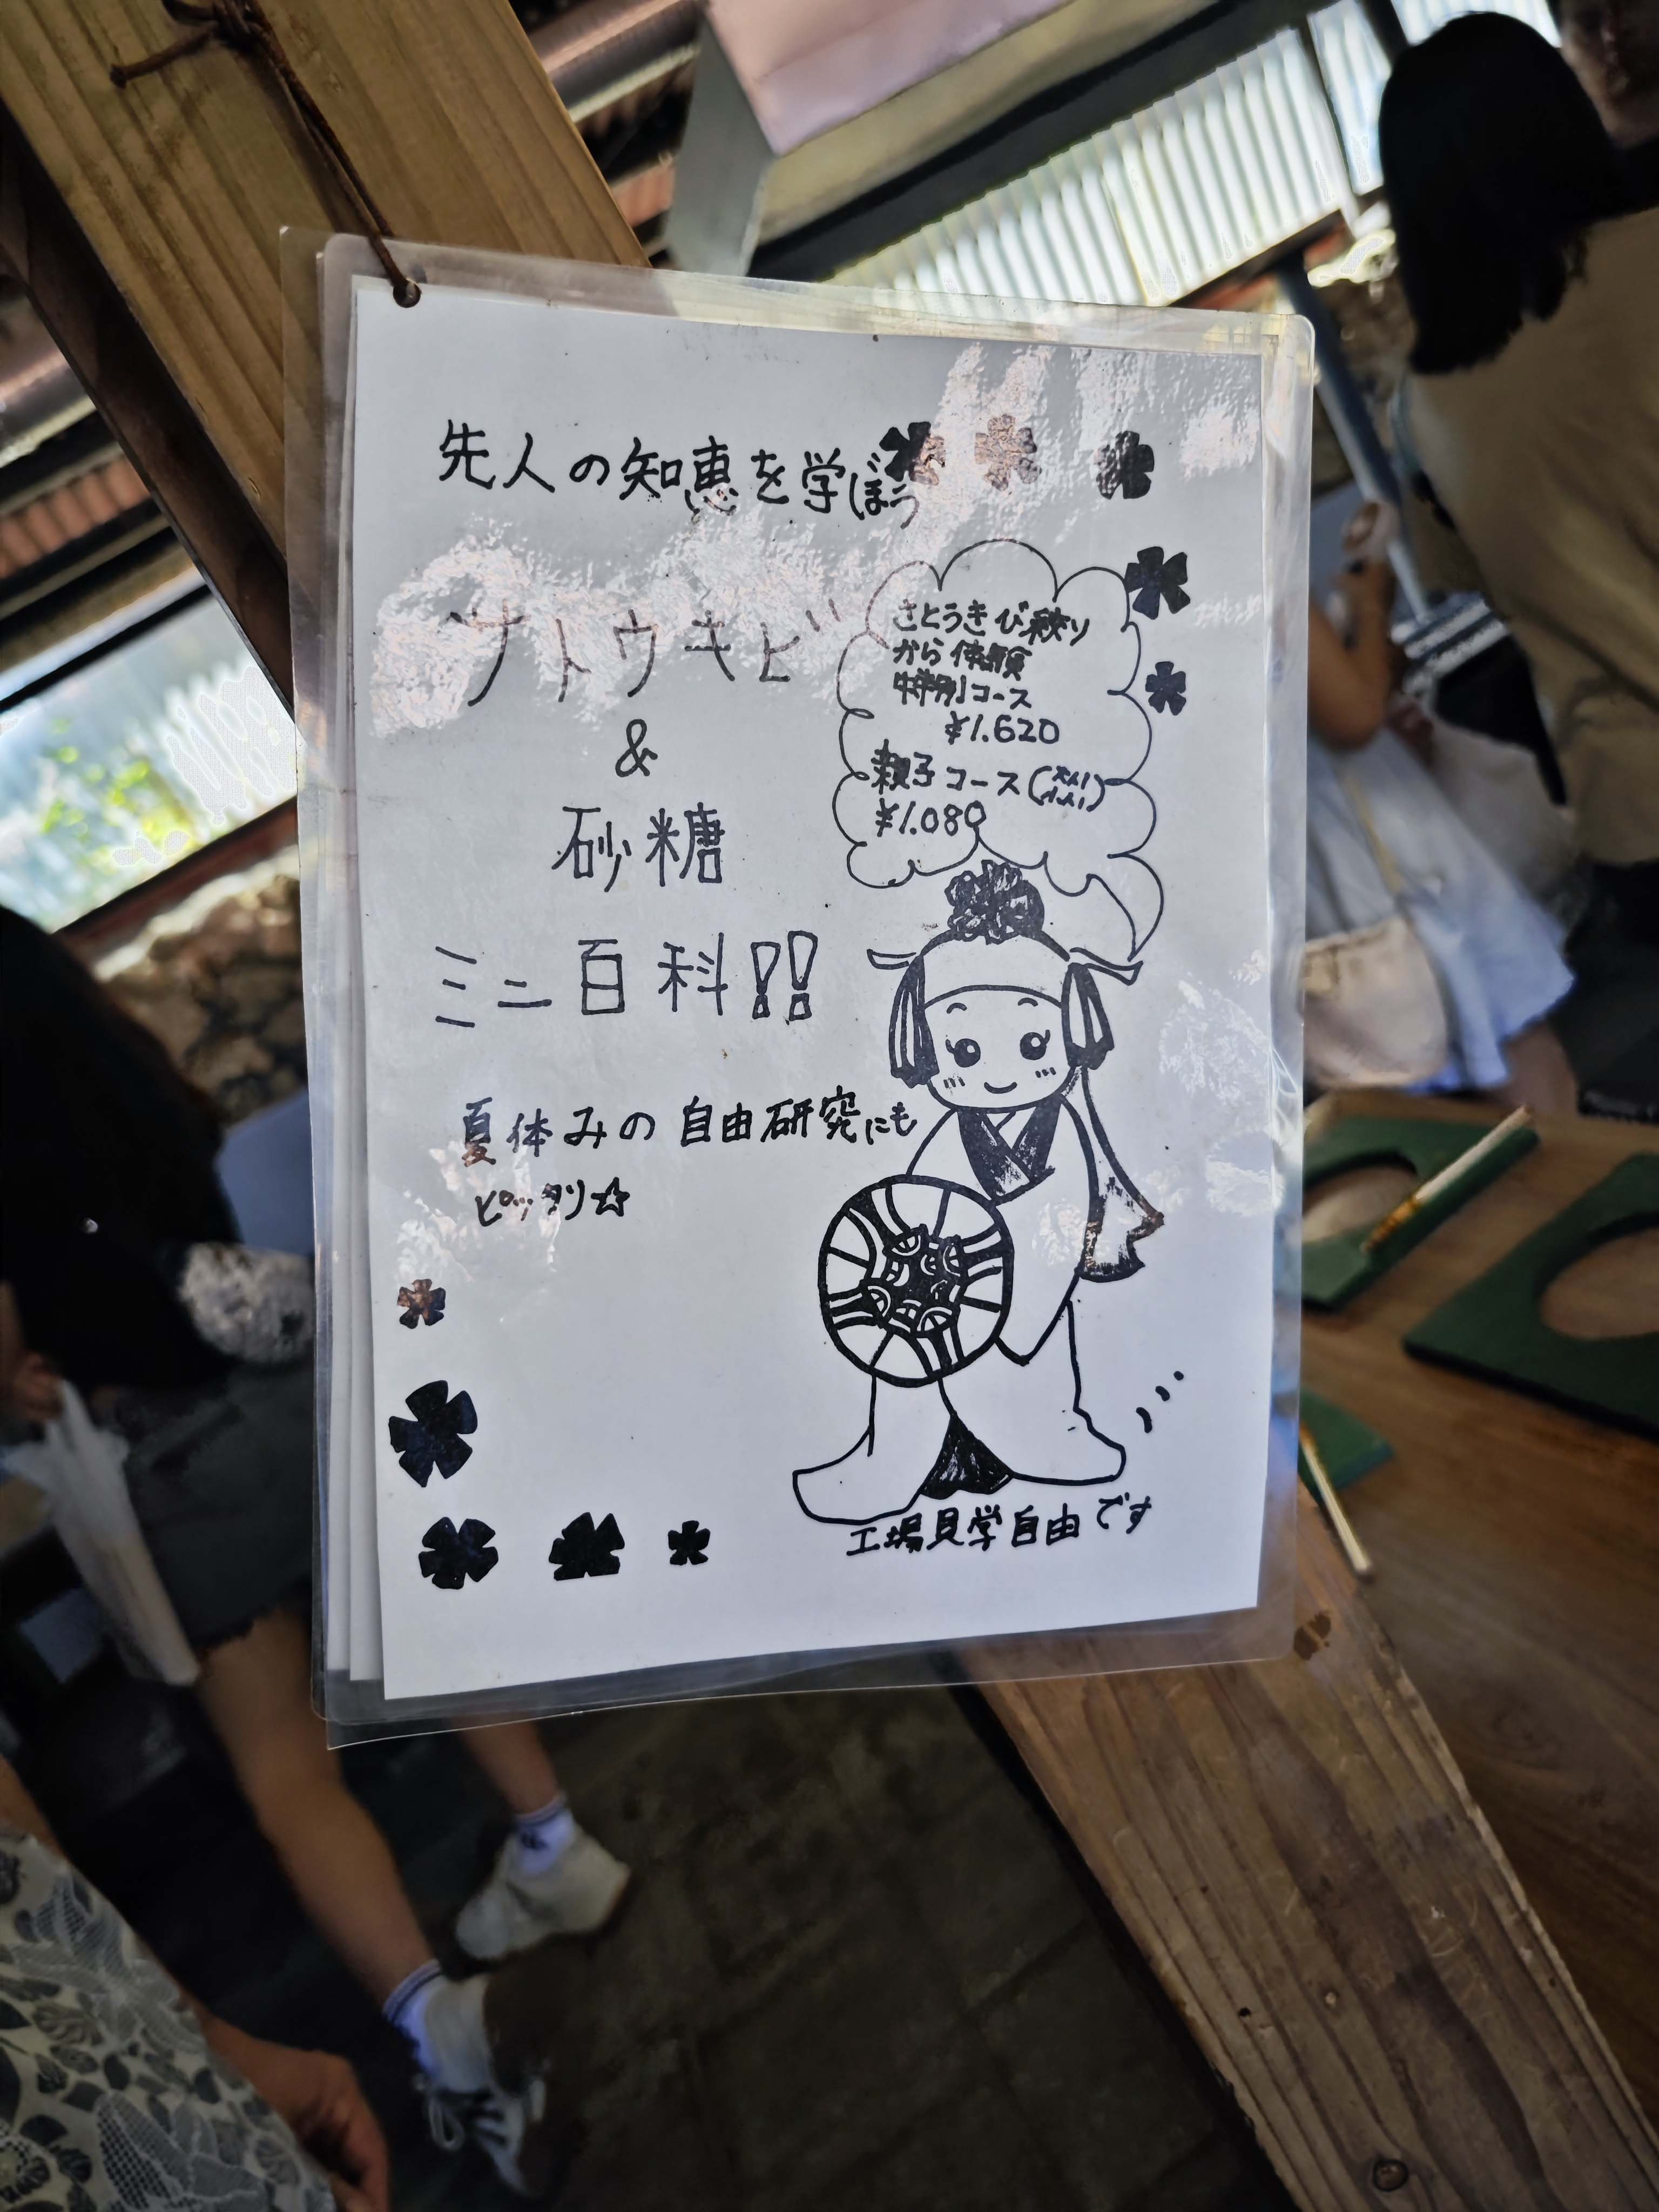 先人の知恵を学ぼう
サトウキビ
&
砂糖
ミニ百科!!
さとうきび搾り
から体験
特別コース
¥1.620
親子コース(大人1 小人1)
¥1.080
夏休みの自由研究にも
ピッタリ☆
工場見学自由です